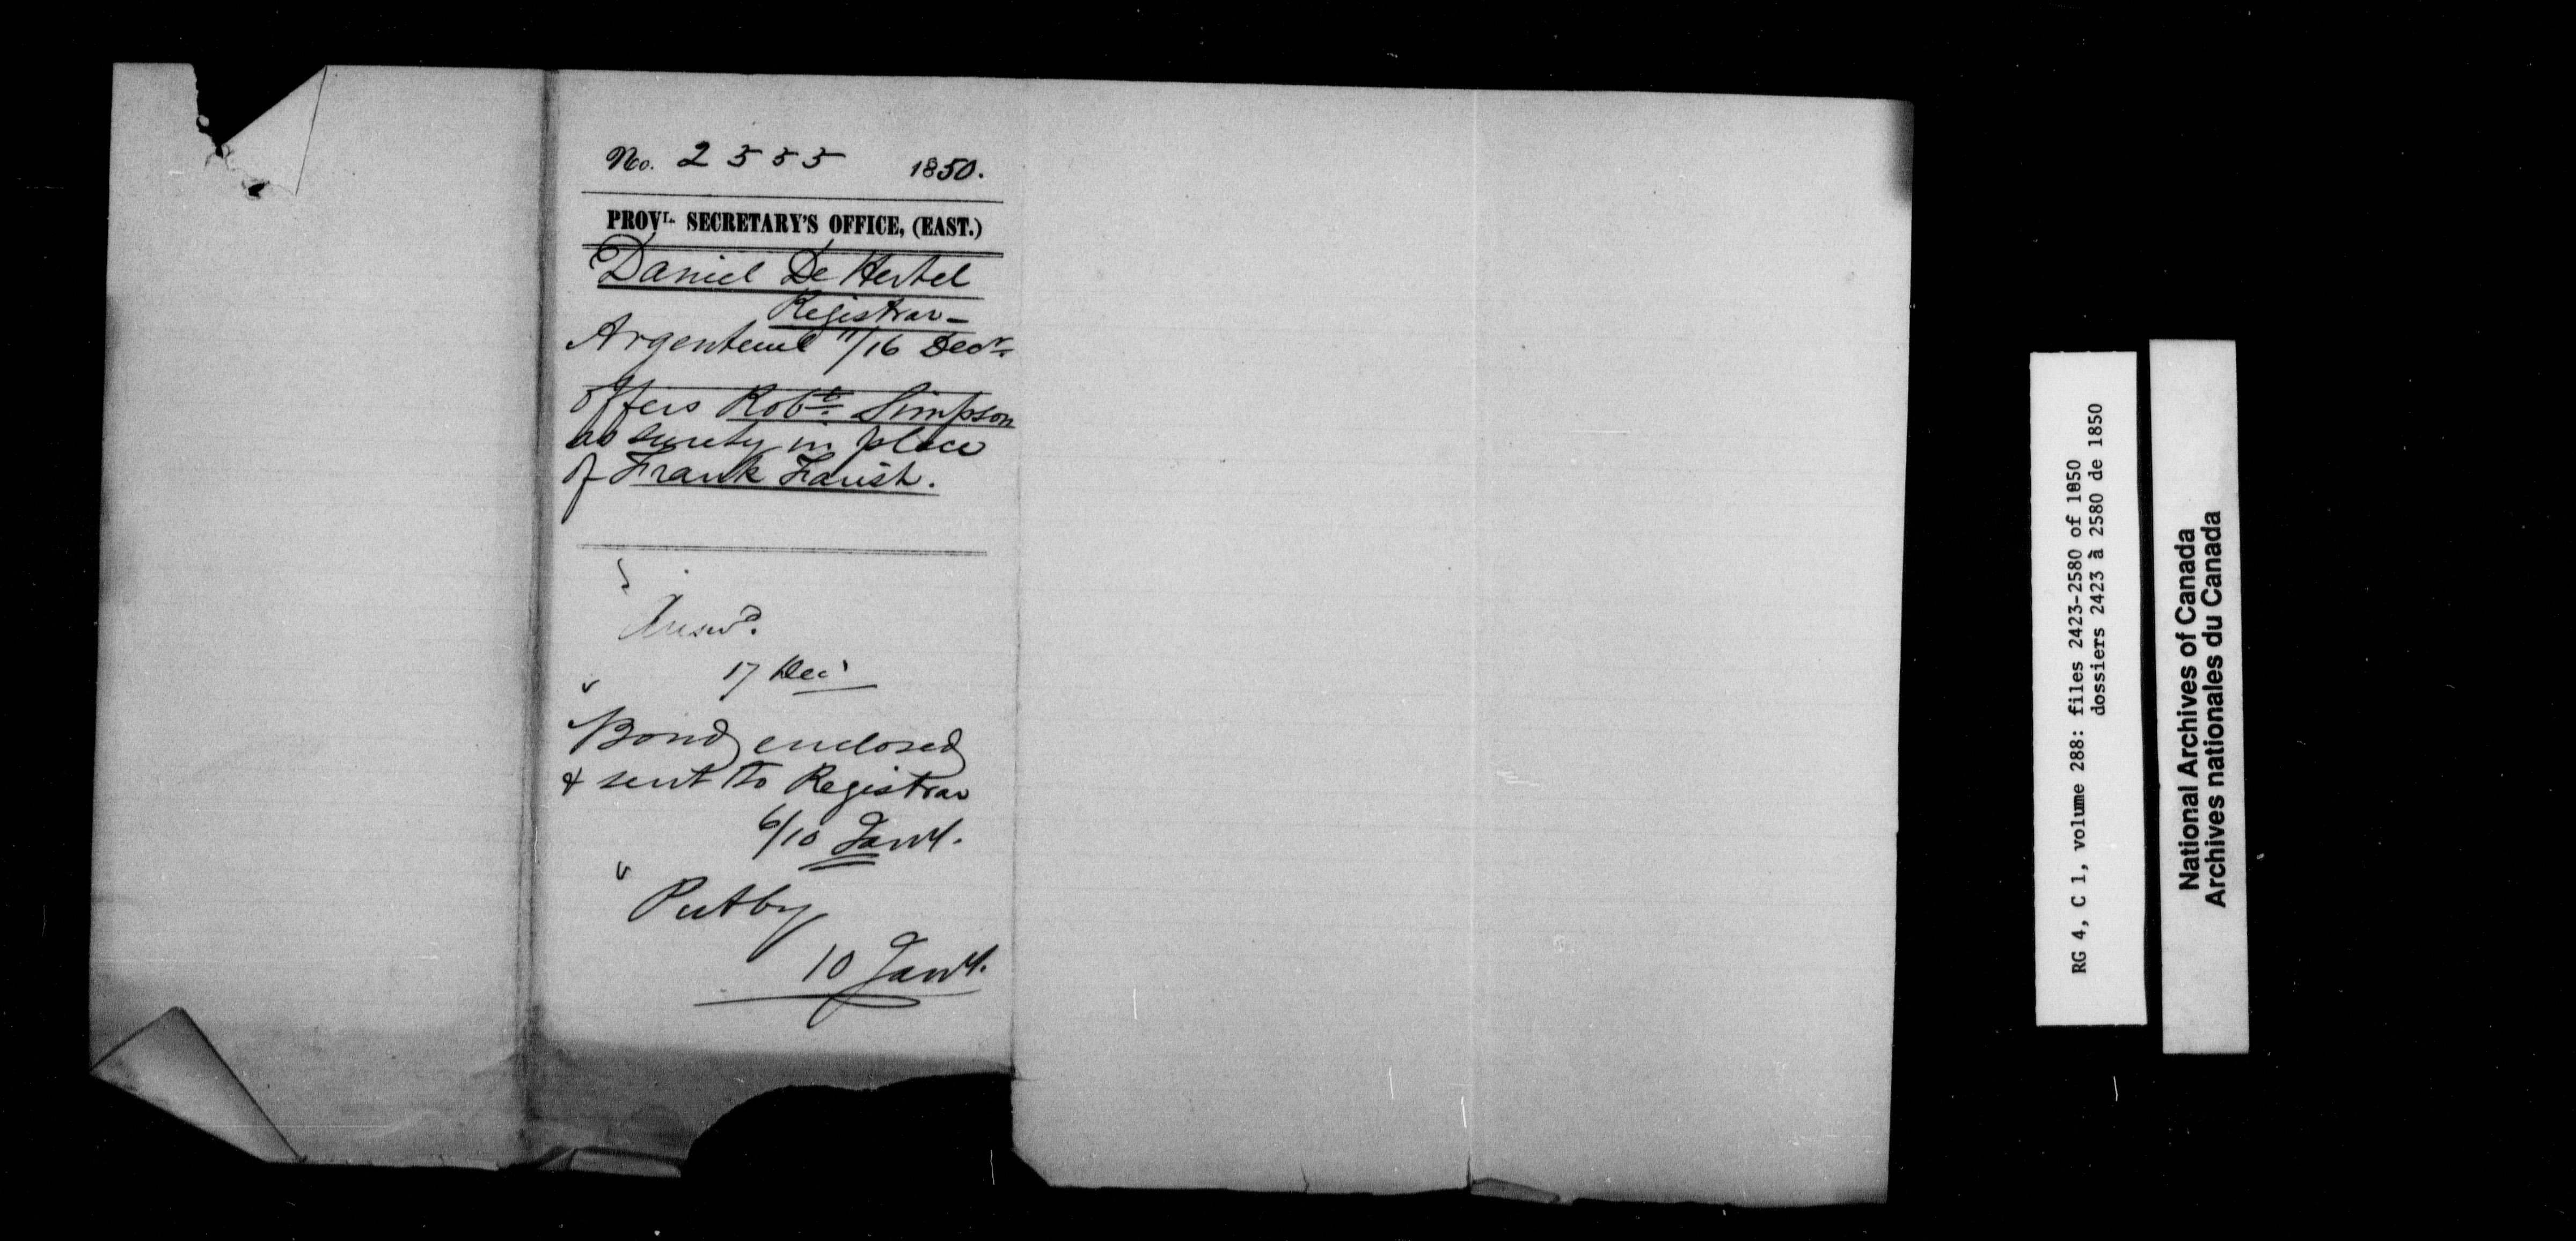 No. 2555 1850.
PROVL. SECRETARY'S OFFICE, (EAST.)
Daniel De Hertel
Registrar-
Argenteuil 11/16 Decr.
offers Robt. Simpson
as surety in place
of Frank Farish.
Answd.
17 Decr
Bond enclosed
& sent to Registrar
6/10 Jany.
Put by
10 Jany.
RG 4, C 1, volume 288: files 2423-2580 of 1850
dossiers 2423 à 2580 de 1850
National Archives of Canada
Archives nationales du Canada